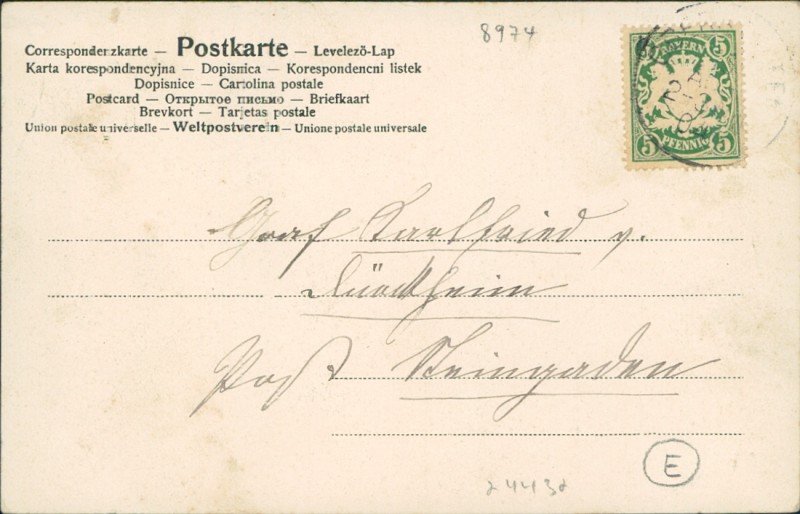 8974
Correspondenzkarte — Postkarte — Levelező-Lap
Karta korespondencyjna — Dopisnica — Korespondencni listek
Dopisnice — Cartolina postale
Postcard — Открытое письмо — Briefkaart
Brevkort — Tarjetas postale
Union postale universelle — Weltpostverein — Unione postale universale
BAYERN
5 5
5 5
PFENNIG
Graf Karlfried v.
Dürckheim
Post Steingaden
E